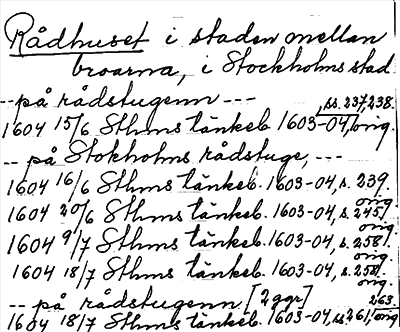 Rådhuset i staden mellan
broarna, i Stockholms stad
-- på rådstugenn ---
1604 15/6 Sthms tänkeb. 1603-04, ss. 237, 238. orig.
-- på Stokholms rådstuge, ---
1604 16/6 Sthms tänkeb. 1603-04, s. 239. orig.
1604 20/6 Sthms tänkeb. 1603-04, s. 245. orig.
1604 9/7 Sthms tänkeb. 1603-04, s. 258. orig.
1604 18/7 Sthms tänkeb. 1603-04, s. 258. orig.
-- på rådstugenn [2 ggr]
1604 18/7 Sthms tänkeb. 1603-04, ss. 261, 263. orig